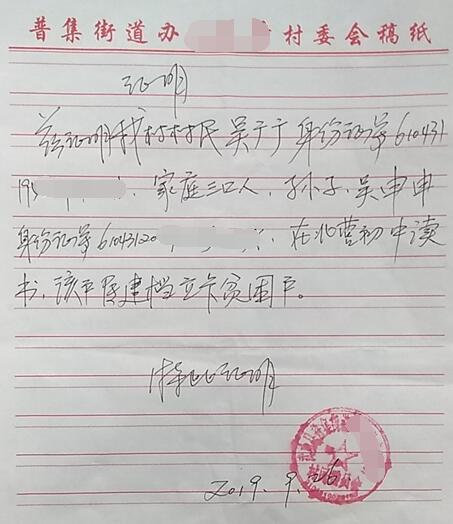 普集街道办 村委会稿纸
证明
兹证明我村村民吴于于身份证号610431
195 家庭三口人,孙子,吴申申
身份证号61043120 在北营初中读
书,该户系建档立卡贫困户。
特此证明
2019.9.26